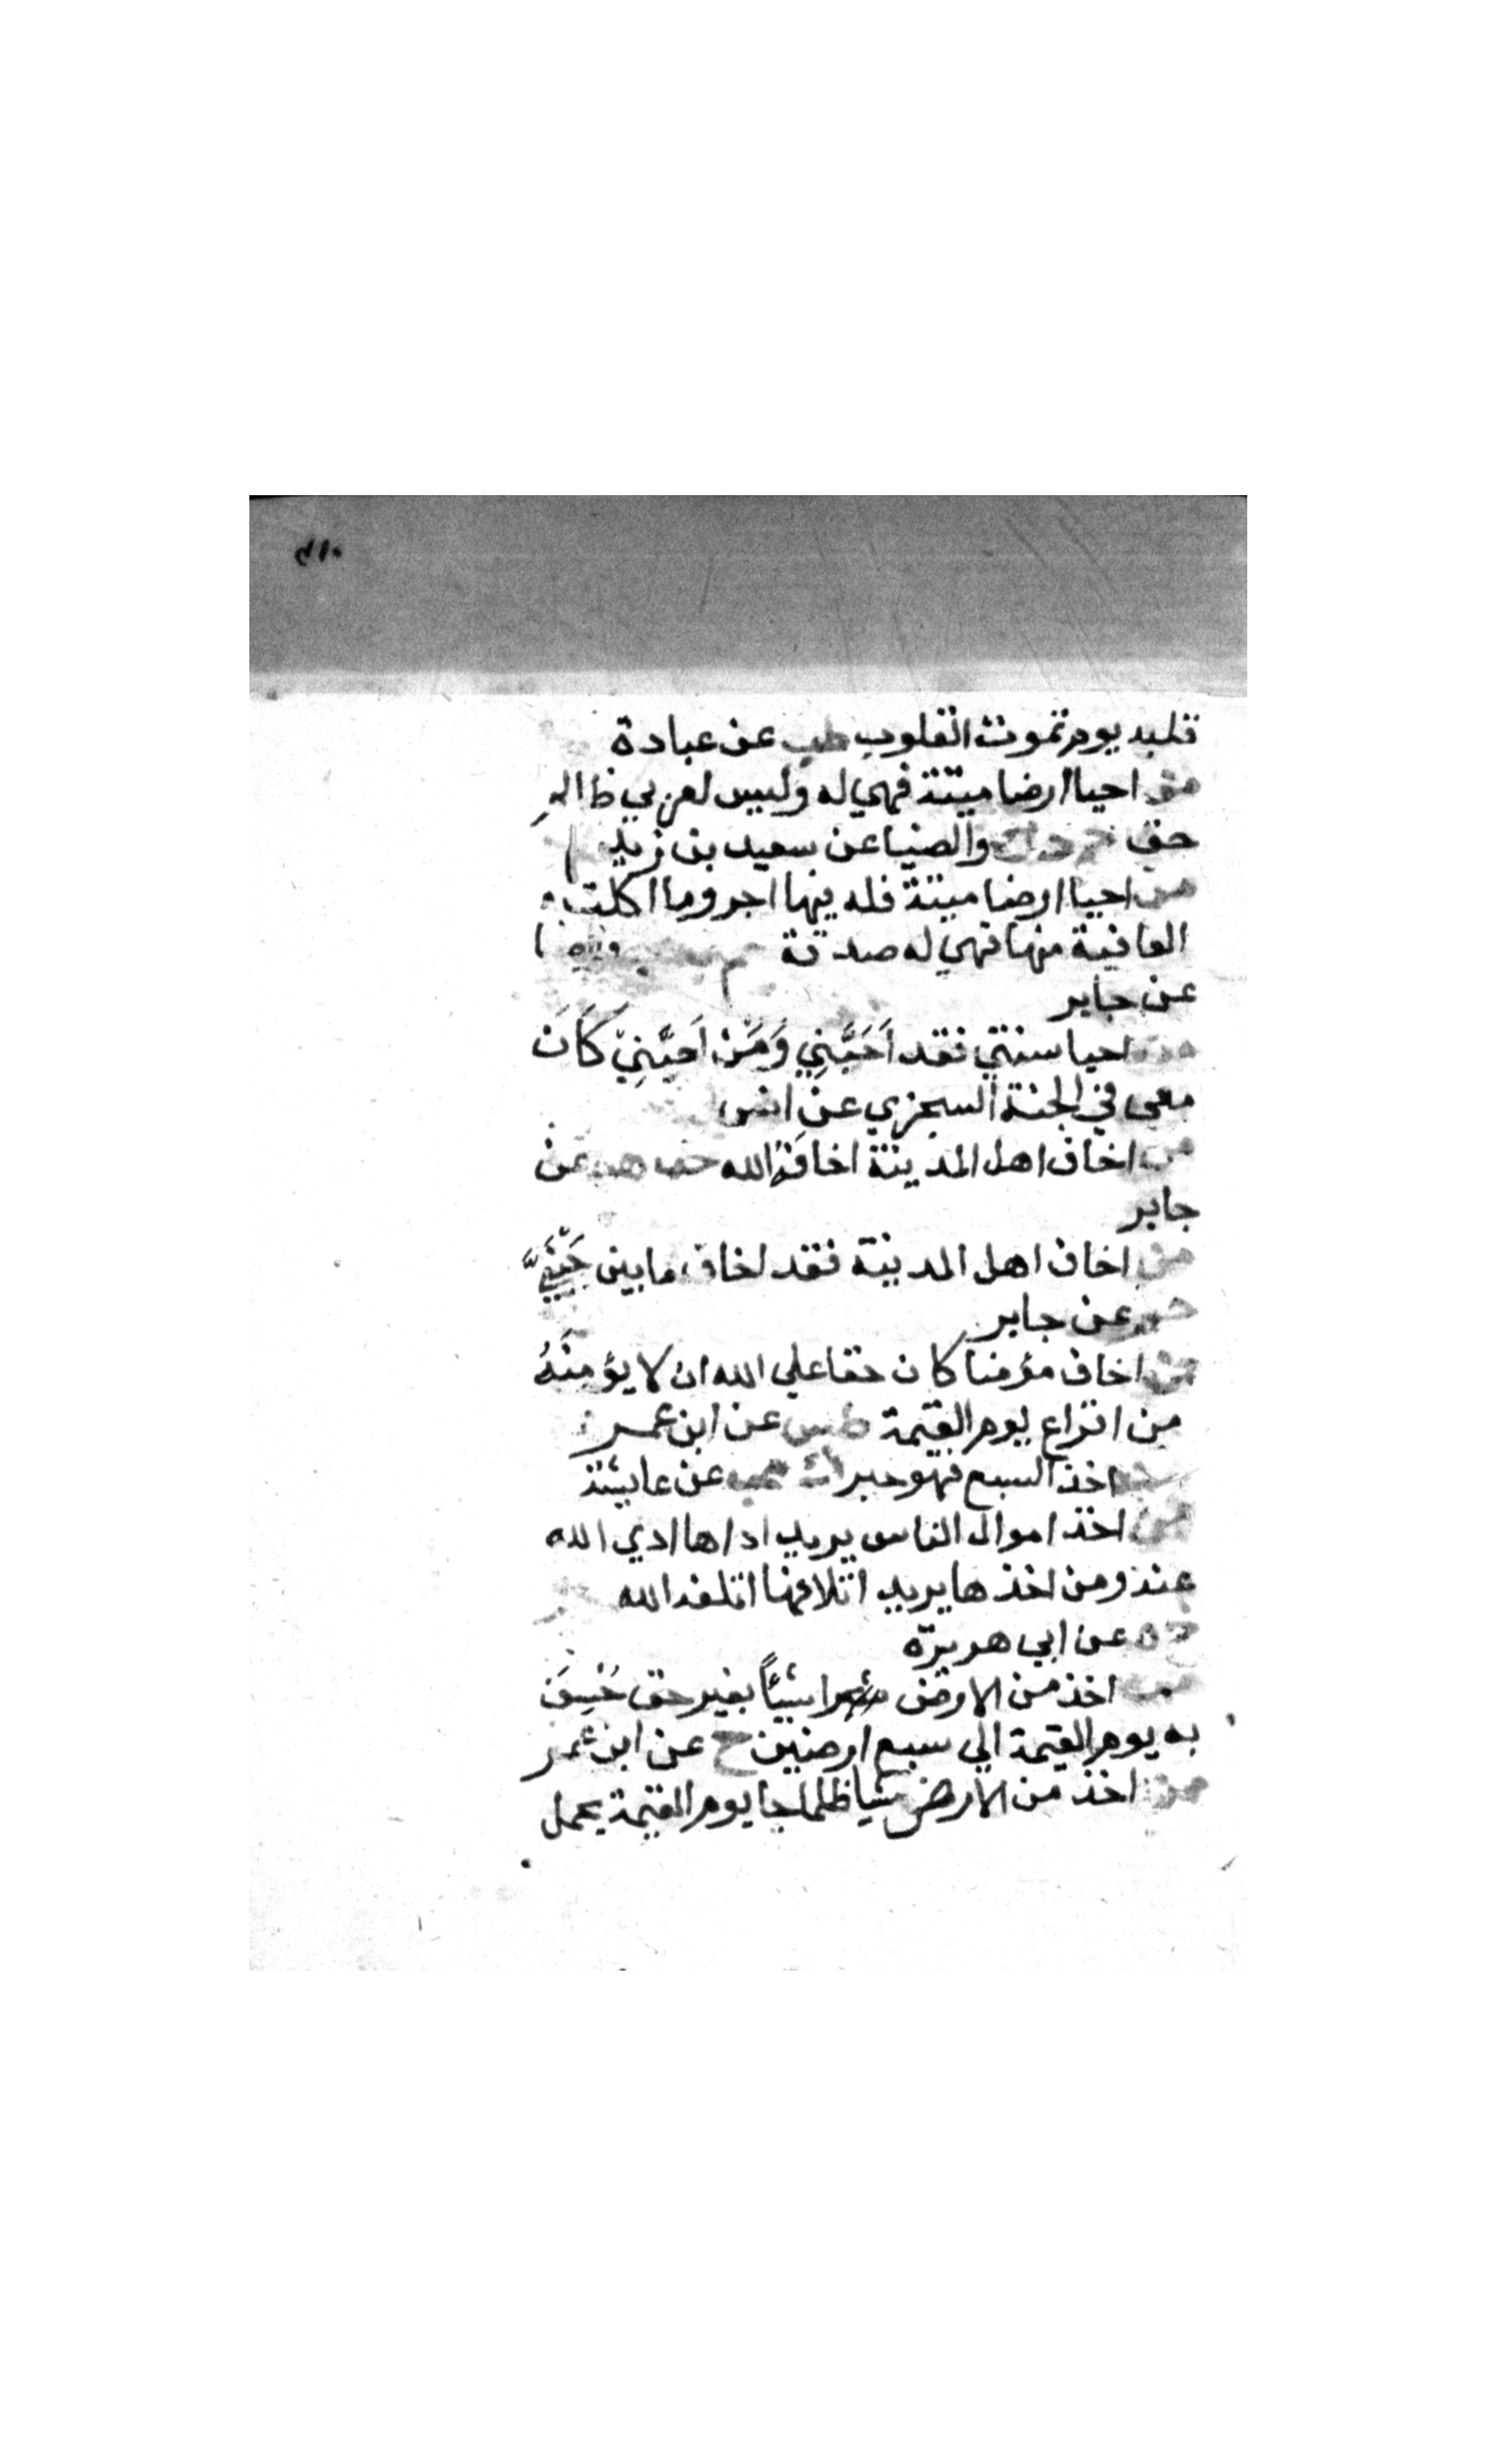 قلبه يوم تموت القلوب طب عن عبادة
من احيا ارضا ميتة فهي له وليس لعرق ظالم
حق حم د ت والضيا عن سعيد بن زيد
من احيا ارضا ميتة فله فيها اجر وما اكلت
العافية منها فهي له صدقة
عن جابر
من احيا سنتي فقد اَحَبَّنِي وَمَنْ اَحَبَّنِيْ كَانَ
معى في الجنة السجزي عن انس
من اخاف اهل المدينة اخافَهُ الله حب عن
جابر
من اخاف اهل المدينة فقد اخاف ما بين جَنْبَيَّ
حم عن جابر
من اخاف مؤمنا كان حقا علي الله ان لا يؤمنَهُ
من افزاع يوم القيمة طس عن ابن عمر
من اخذ السبع فهو حبر ك هب عن عايشة
من اخذ اموال الناس يريد اداها ادي الله
عنه ومن اخذها يريد اتلافها اتلفه الله
حم خ ه عن ابي هريرة
من اخذ من الارض شيئًا بغير حق خُسِفَ
به يوم القيمة الي سبع ارضين خ عن ابن عمر
من اخذ من الارض شيا ظلما جا يوم القيمة يحمل